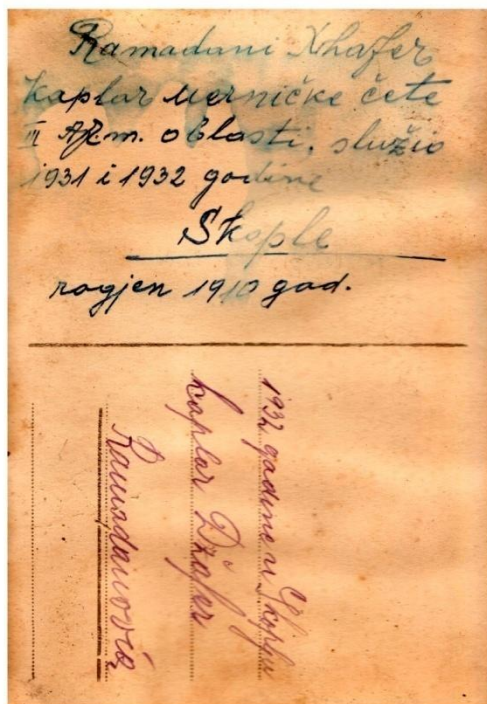 Ramadani Xhafer
Kaplar merničke čete
III Arm. oblasti, služio
1931 i 1932 godine
Skople
rogjen 1910 god.
1932 godine u Skoplju
kaplar Džafer
Ramadanović